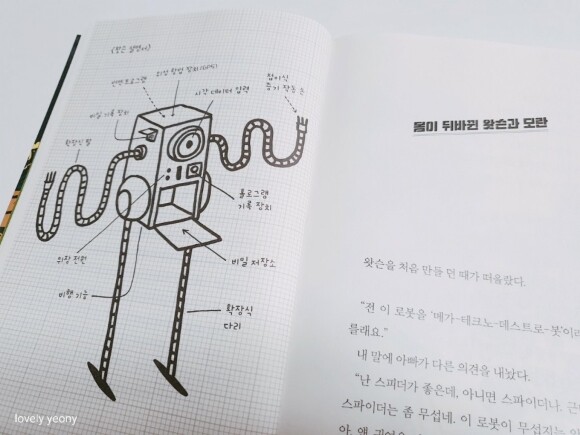 위치 항법 장치(GPS)
안면 프로그램
시간 데이터 입력
접이식
비밀 기록 장치
확장식 팔
홀로그램
기록 장치
위장 전원
비밀 저장소
비행 기능
확장식
다리
몸이 뒤바뀐 왓슨과 모란
왓슨을 처음 만들 던 때가 떠올랐다.
"전 이 로봇을 '메가-테크노-데스트로-봇'이라
를래요."
내 말에 아빠가 다른 의견을 내놨다.
"난 스피더가 좋은데, 아니면 스파이더나.
스파이더는 좀 무섭네. 이 로봇이 무섭지는
lovely yeony